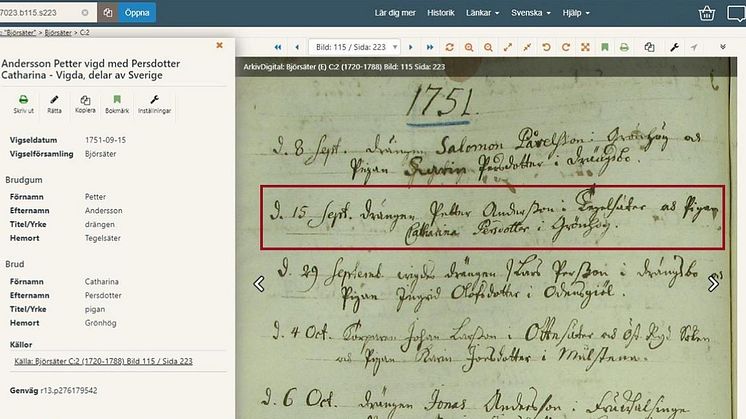 7023.b115.s223
Öppna
Lär dig mer Historik Länkar Svenska Hjälp
: "Björsäter" > Björsäter > C:2
Andersson Petter vigd med Persdotter
Catharina - Vigda, delar av Sverige
Skriv ut Rätta Kopiera Bokmärk Inställningar
Vigseldatum 1751-09-15
Vigselförsamling Björsäter
Brudgum
Förnamn Petter
Efternamn Andersson
Titel/Yrke drängen
Hemort Tegelsäter
Brud
Förnamn Catharina
Efternamn Persdotter
Titel/Yrke pigan
Hemort Grönhög
Källor
Källa: Björsäter C:2 (1720-1788) Bild 115 / Sida 223
Genväg r13.p276179542
Bild: 115 / Sida: 223
ArkivDigital: Björsäter (E) C:2 (1720-1788) Bild: 115 Sida: 223
1751.
d. 8 Sept. drängen Salomon i Grönhög
Pigan Karin Persdotter i Drängsbo.
d. 15 Sept. drängen Petter Andersson i Tegelsäter Pigan
Catharina Persdotter i Grönhög.
d. 29 drängen Lars Persson i drängsbo
Pigan Ingrid Olofsdotter i
d. 4 Oct. Johan Larsson i
Pigan Karin i
d. 6 Oct. drängen Jonas Andersson i